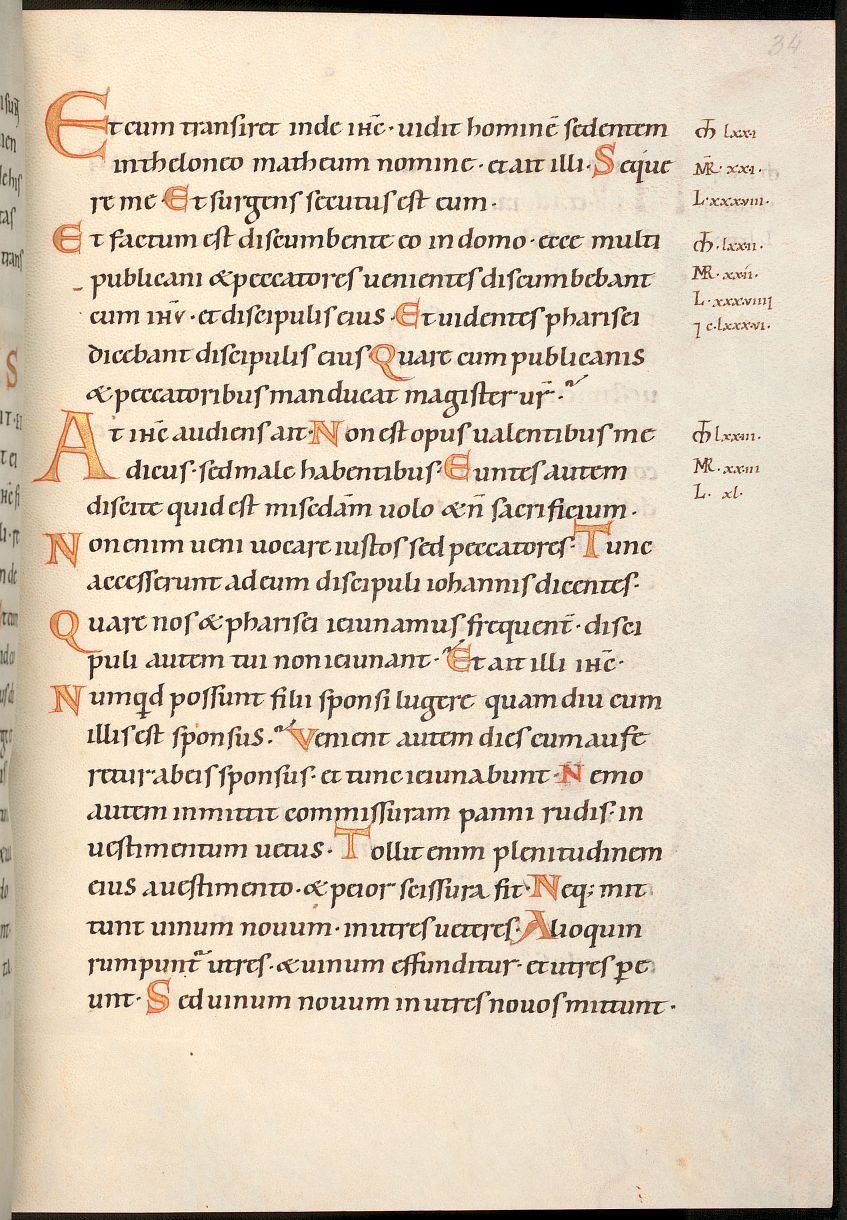 34
Et cum transiret inde ihc̄ · uidit hominē sedentem
in theloneo matheum nomine · et ait illi · Seque
re me · Et surgens secutus est eum ·
Et factum est discumbente eo in domo · ecce multi
publicani & peccatores uenientes discumbebant
cum ihū · et discipulis eius · Et uidentes pharisei
dicebant discipulis eius · Quare cum publicanis
& peccatoribus manducat magister ur̄ ·
At ihc̄ audiens ait · Non est opus ualentibus me
dicus · sed male habentibus · Euntes autem
discite quid est misedām uolo & n̄ sacrificium ·
Non enim ueni uocare iustos sed peccatores · Tunc
accesserunt ad eum discipuli iohannis dicentes ·
Quare nos & pharisei ieiunamus frequent̄ · disci
puli autem tui non ieiunant · Et ait illi ihc̄ ·
Numqd possunt filii sponsi lugere quam diu cum
illis est sponsus · Venient autem dies cum aufe
retur ab eis sponsus · et tunc ieiunabunt · Nemo
autem inmittit commissuram panni rudis · in
uestimentum uetus · Tollit enim plenitudinem
eius a uestimento · & peior scissura fit · Neq; mit
tunt uinum nouum · in utres ueteres · Alioquin
rumpunt̄ utres · & uinum effunditur · et utres ꝑe
unt · Sed uinum nouum in utres nouos mittunt ·
lxxi
MR · xxi ·
L · xxxviii ·
lxxii ·
MR · xxii ·
L · xxxviiii
lxxiii ·
MR · xxiii
L · xl ·